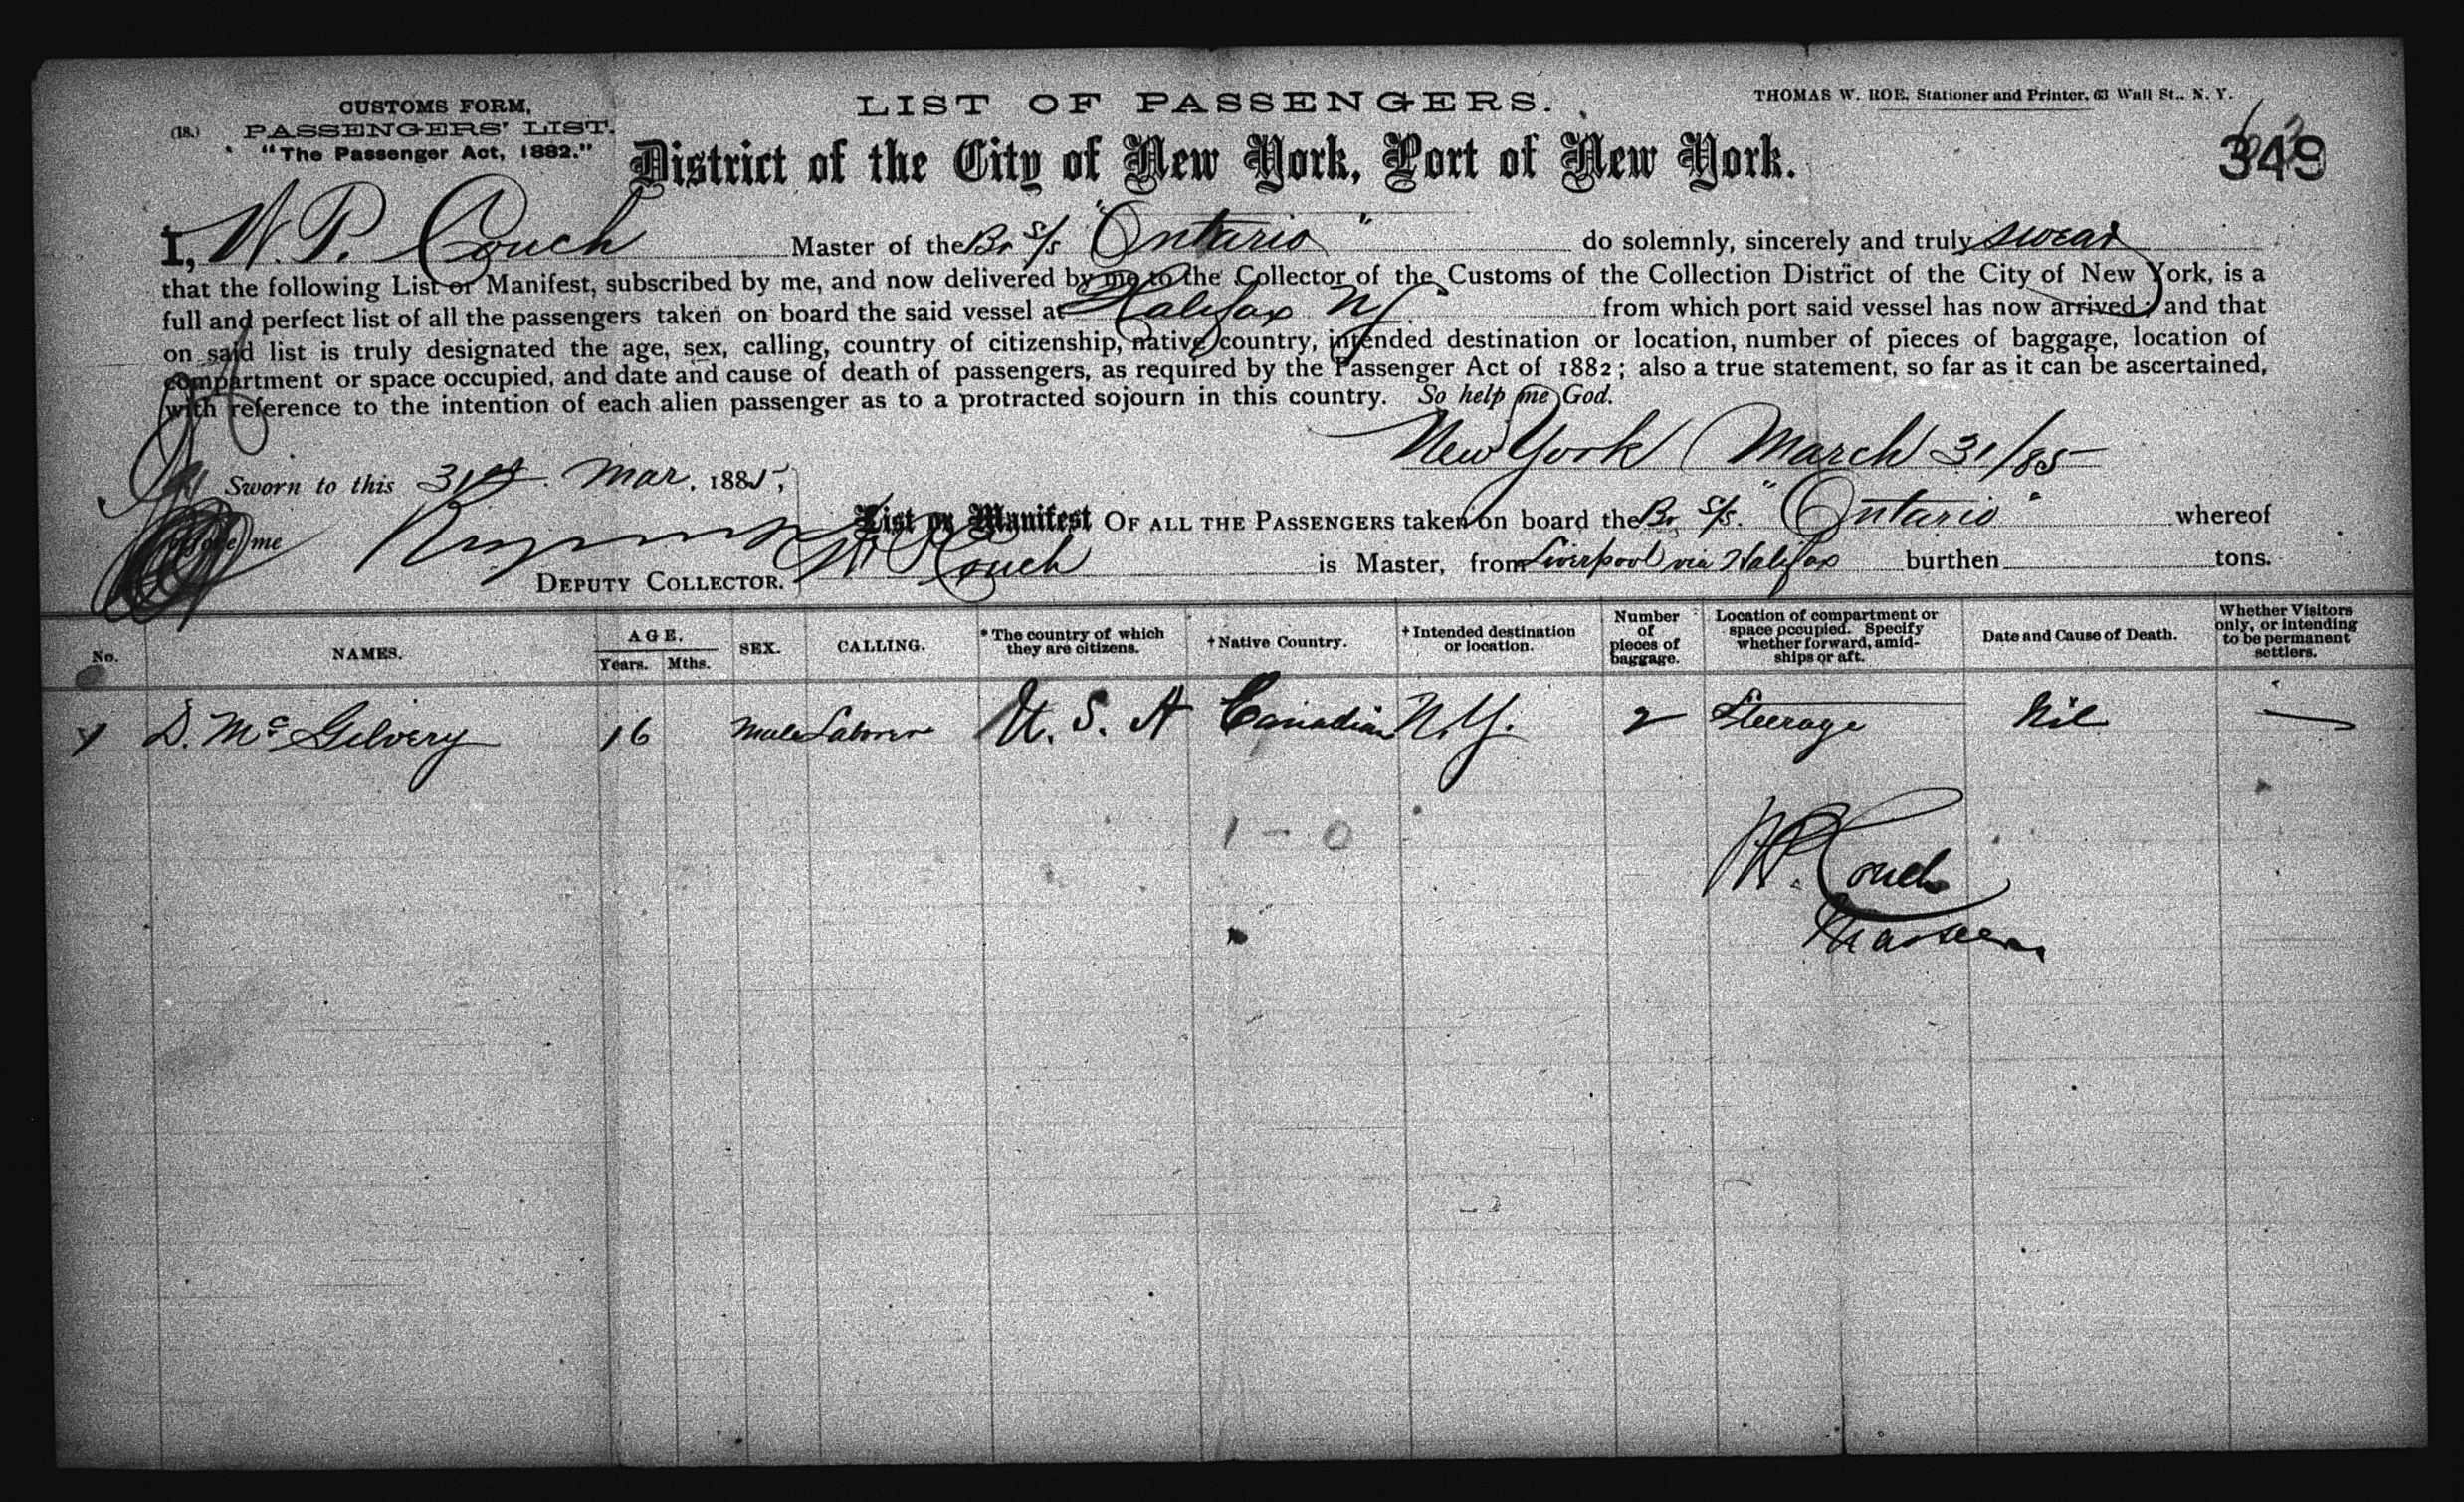 CUSTOMS FORM,
(18.) PASSENGERS' LIST.
"The Passenger Act, 1882."
LIST OF PASSENGERS.
THOMAS W. ROE, Stationer and Printer, 63 Wall St., N. Y.
District of the City of New York, Port of New York.
349
I, W. P. Couch Master of the Br S/S "Ontario" do solemnly, sincerely and truly swear
that the following List or Manifest, subscribed by me, and now delivered by me to the Collector of the Customs of the Collection District of the City of New York, is a
full and perfect list of all the passengers taken on board the said vessel at Halifax from which port said vessel has now arrived; and that
on said list is truly designated the age, sex, calling, country of citizenship, native country, intended destination or location, number of pieces of baggage, location of
compartment or space occupied, and date and cause of death of passengers, as required by the Passenger Act of 1882; also a true statement, so far as it can be ascertained,
with reference to the intention of each alien passenger as to a protracted sojourn in this country. So help me God.
New York March 31/85
Sworn to this 31st. Mar. 1885,
before me
DEPUTY COLLECTOR.
List or Manifest OF ALL THE PASSENGERS taken on board the Br S/S. "Ontario" whereof
W P Couch is Master, from Liverpool via Halifax burthen tons.
No. NAMES. AGE. Years. Mths. SEX. CALLING. *The country of which they are citizens. †Native Country. †Intended destination or location. Number of pieces of baggage. Location of compartment or space occupied. Specify whether forward, amidships or aft. Date and Cause of Death. Whether Visitors only, or intending to be permanent settlers.
1 D. McGilvery 16 Male Laborer U. S. A Canadian N.Y. 2 Steerage Nil —
1 - 0
W P. Couch
Master